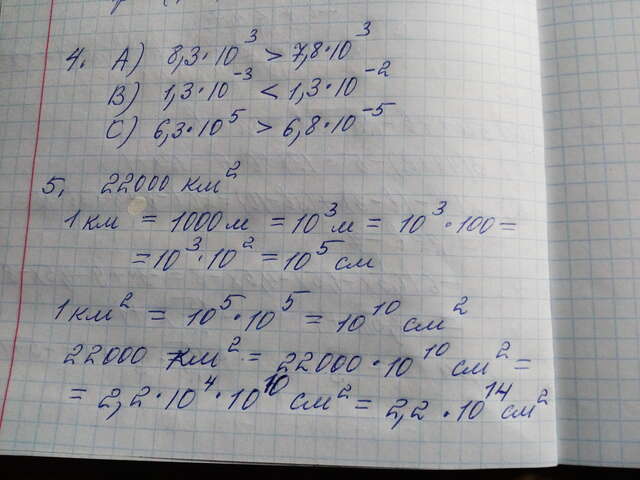 4. А) 8,3·10³ > 7,8·10³
В) 1,3·10⁻³ < 1,3·10⁻²
С) 6,3·10⁵ > 6,8·10⁻⁵
5. 22000 км²
1 км = 1000м = 10³м = 10³·100=
=10³·10² = 10⁵см
1км² = 10⁵·10⁵ = 10¹⁰см²
22000 км² = 22000·10¹⁰ см² =
= 2,2·10⁴·10¹⁰ см² = 2,2·10¹⁴см²